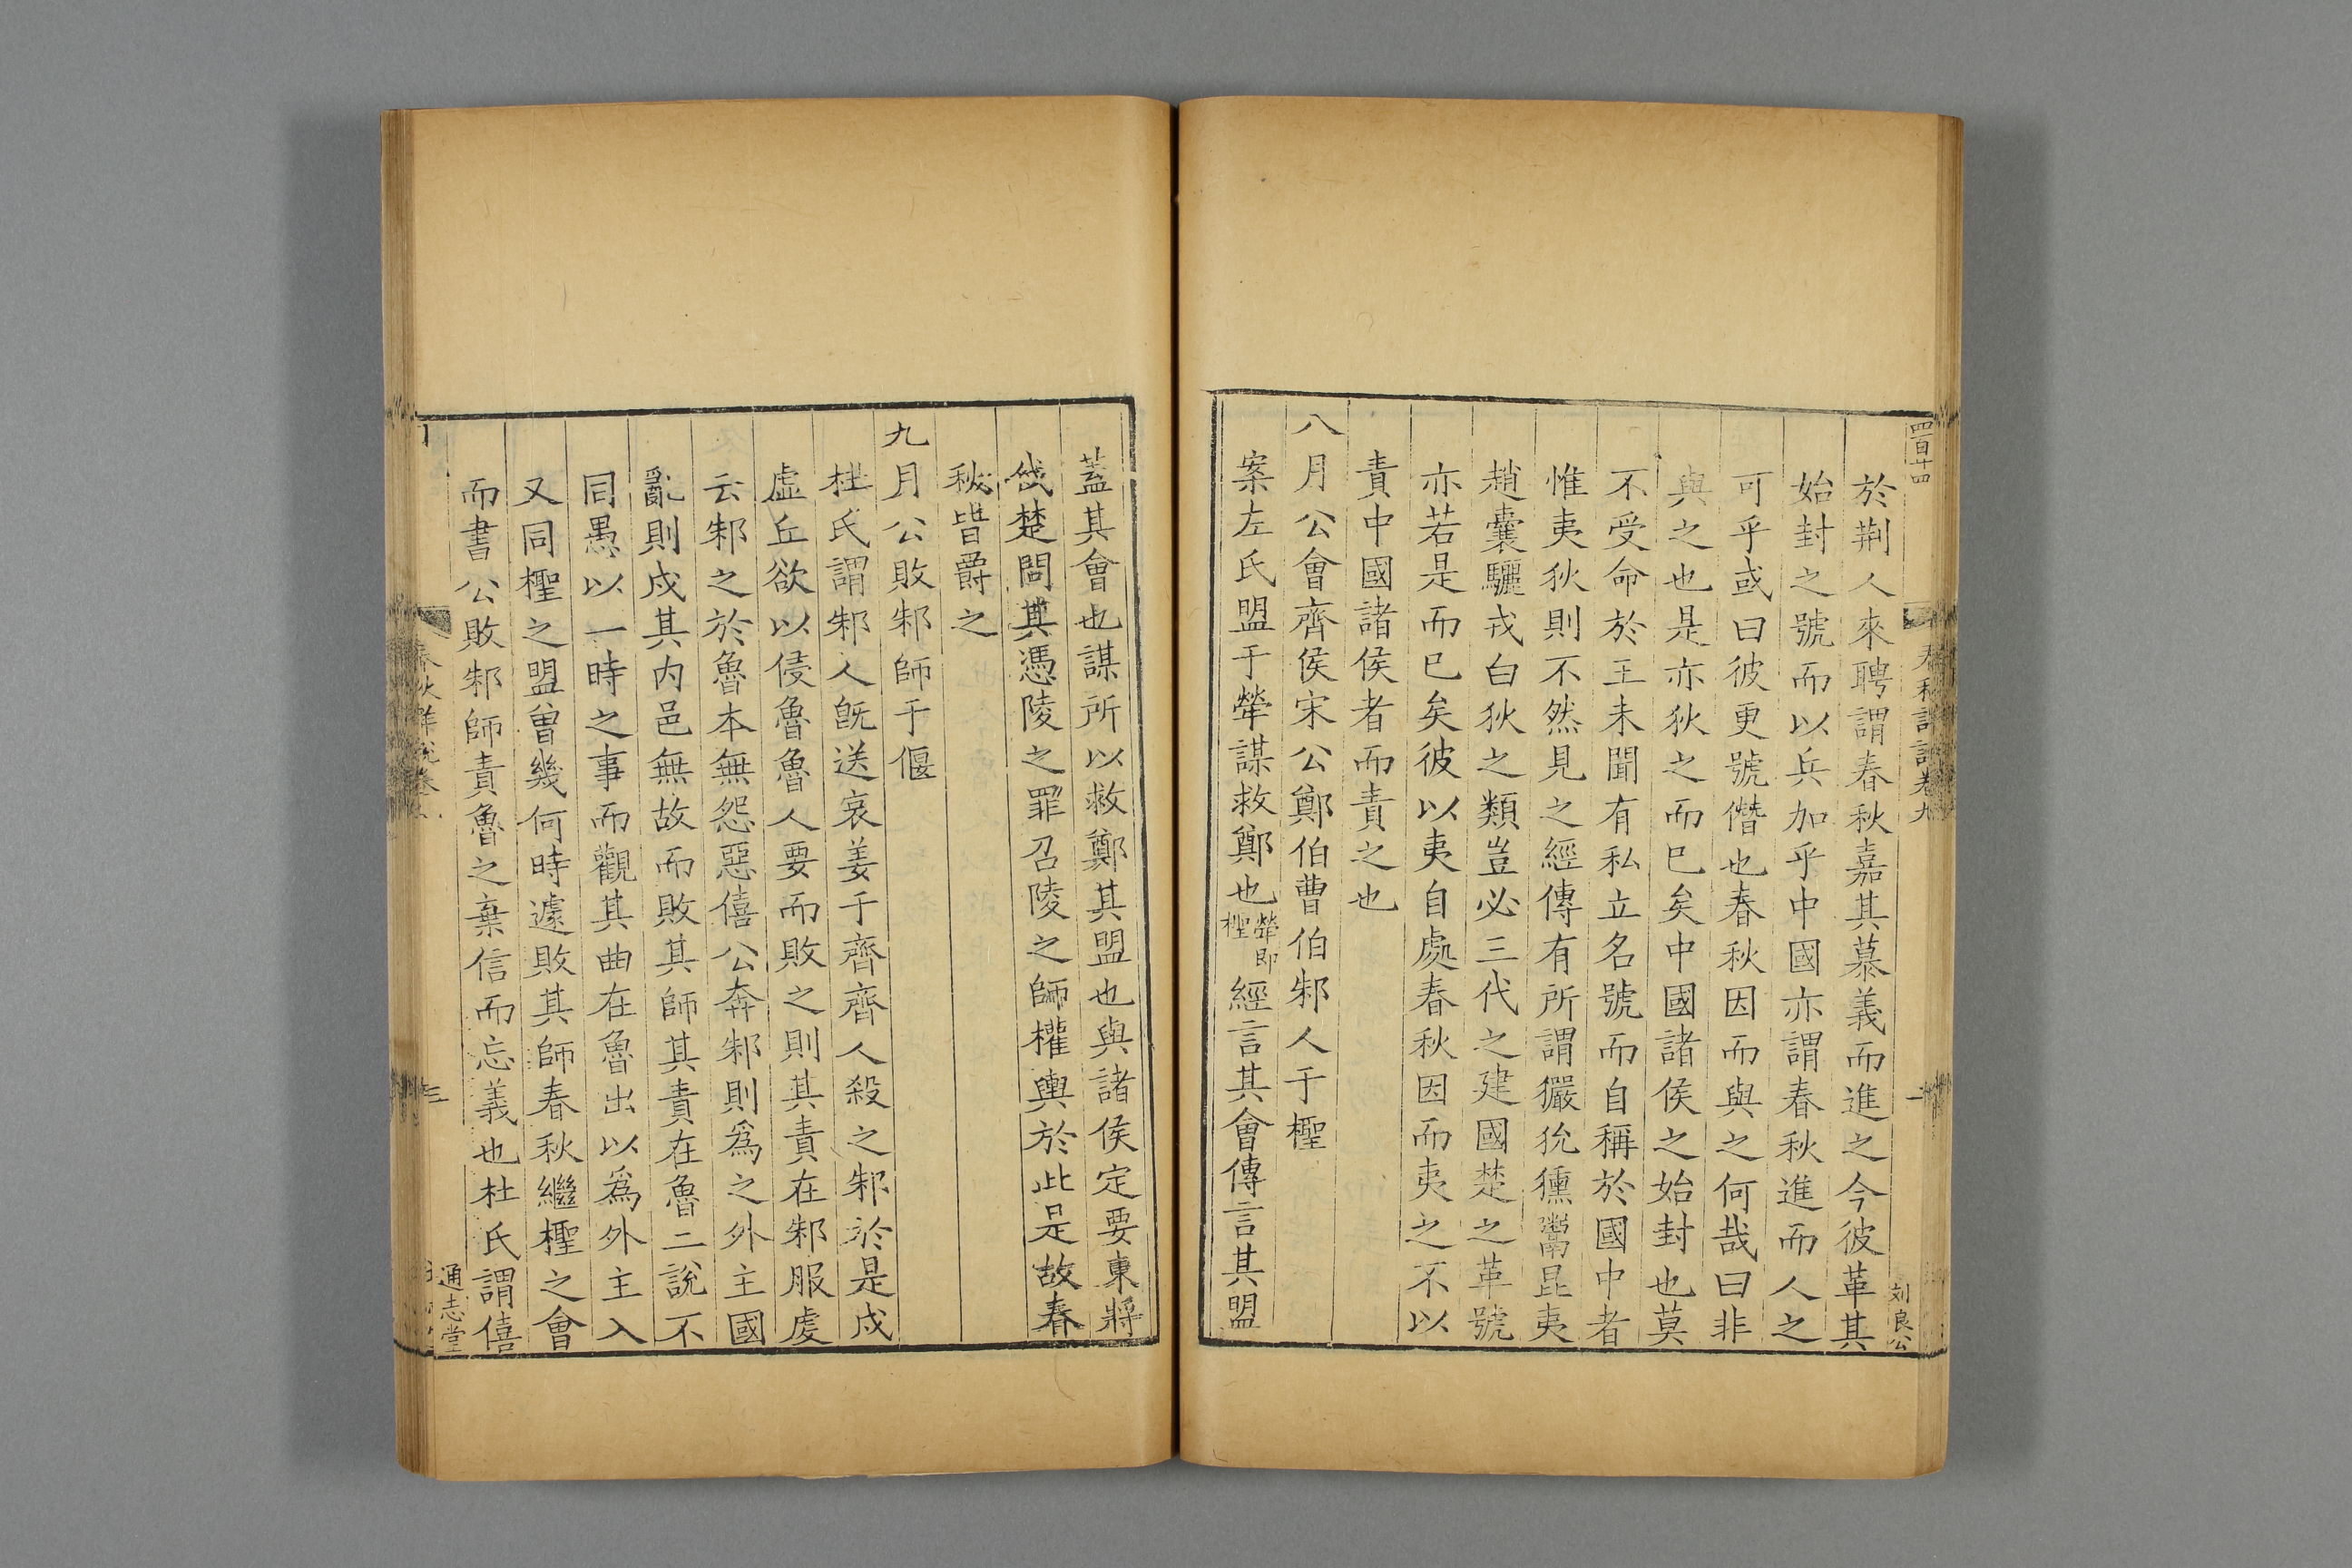 四百十四
春秋詳說卷九
二
刘良公
於荆人來聘謂春秋嘉其慕義而進之今彼革其
始封之號而以兵加乎中國亦謂春秋進而人之
可乎或曰彼更號僭也春秋因而與之何哉曰非
與之也是亦狄之而已矣中國諸侯之始封也莫
不受命於王未聞有私立名號而自稱於國中者
惟夷狄則不然見之經傳有所謂玁狁獯鬻昆夷
趙囊驪戎白狄之類豈必三代之建國楚之革號
亦若是而已矣彼以夷自處春秋因而夷之不以
責中國諸侯者而責之也
八月公會齊侯宋公鄭伯曹伯邾人于檉
案左氏盟于犖謀救鄭也犖即檉經言其會傳言其盟
蓋其會也謀所以救鄭其盟也與諸侯定要東將
伐楚問其憑陵之罪召陵之師權輿於此是故春
秋皆爵之
九月公敗邾師于偃
杜氏謂邾人旣送哀姜于齊齊人殺之邾於是戍
虛丘欲以侵魯魯人要而敗之則其責在邾服虔
云邾之於魯本無怨惡僖公奔邾則爲之外主國
亂則戍其内邑無故而敗其師其責在魯二說不
同愚以一時之事而觀其曲在魯出以爲外主入
又同檉之盟曾幾何時遽敗其師春秋繼檉之會
而書公敗邾師責魯之棄信而忘義也杜氏謂僖
春秋詳說卷
三
通志堂